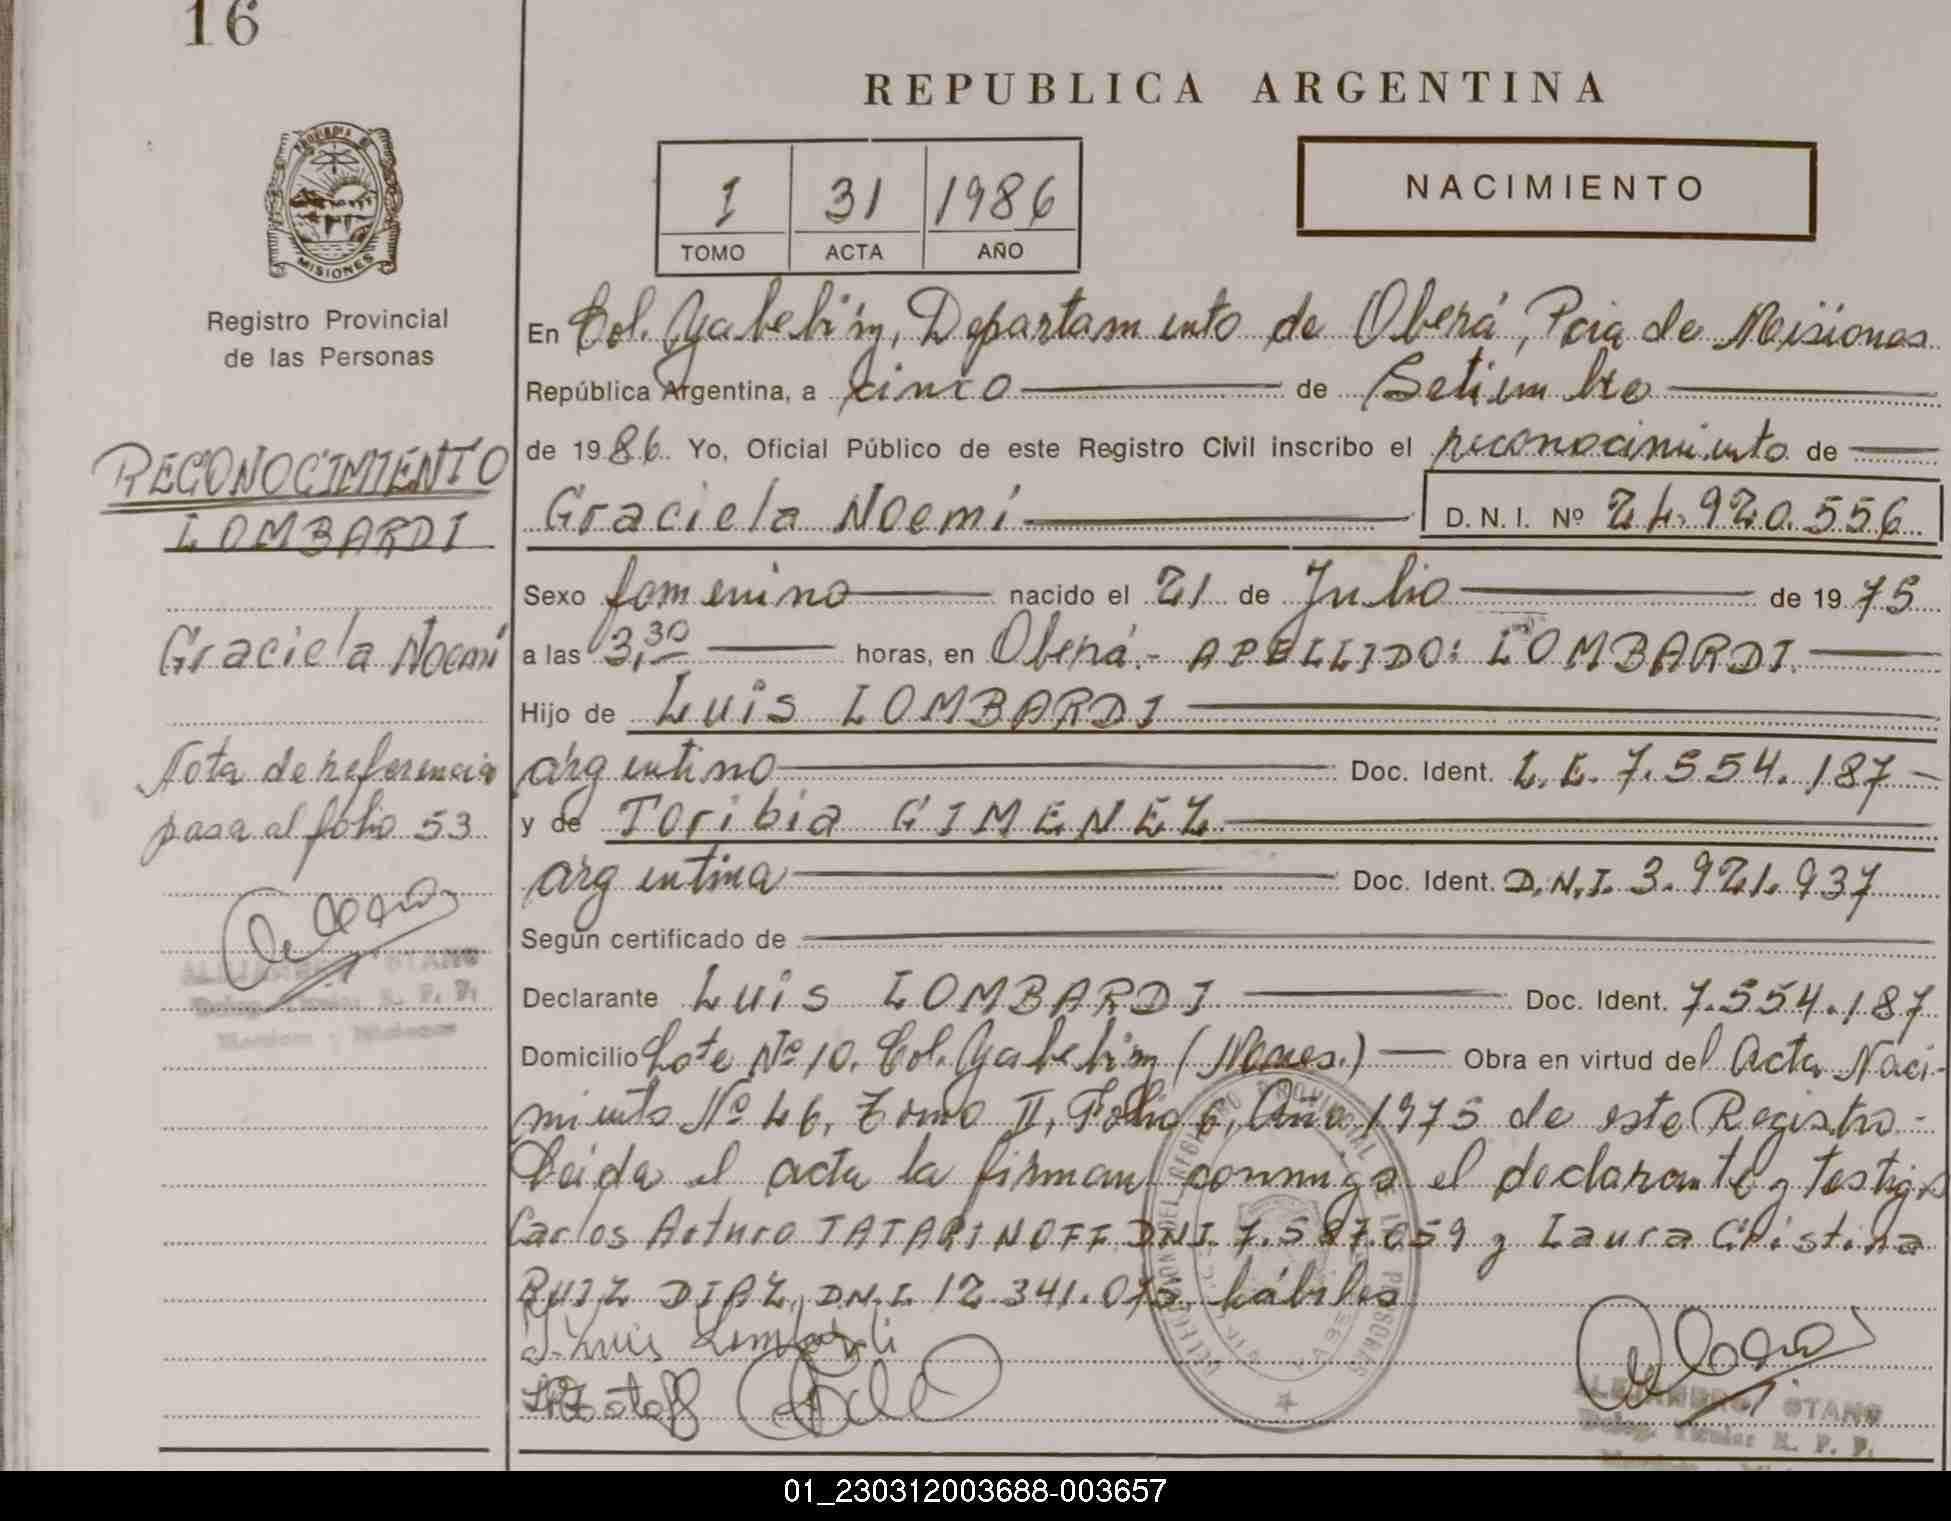 16
REPUBLICA ARGENTINA
1 31 1986
TOMO ACTA AÑO
NACIMIENTO
MISIONES
Registro Provincial
de las Personas
En Col. Yabebiry, Departamento de Oberá, Pcia de Misiones
República Argentina, a cinco de Setiembre
de 1986. Yo, Oficial Público de este Registro Civil inscribo el reconocimiento de
Graciela Noemí D.N.I. Nº 24.920.556
Sexo femenino nacido el 21 de Julio de 1975
a las 3,30 horas, en Oberá.- APELLIDO: LOMBARDI.
Hijo de Luis LOMBARDI
argentino Doc. Ident. L.E. 7.554.187
y de Toribia GIMENEZ
argentina Doc. Ident. D.N.I. 3.921.937
Según certificado de
Declarante Luis LOMBARDI Doc. Ident. 7.554.187
Domicilio Lote Nº 10. Col. Yabebiry (Mnes.) Obra en virtud del Acta Naci-
miento Nº 46, Tomo II, Folio 6, Año 1975 de este Registro.-
Leida el acta la firman conmigo el declarante y testigos
Carlos Arturo TATARINOFF DNI. 7.587.659 y Laura Cristina
RUIZ DIAZ, D.N.I. 12.341.075, hábiles
Luis Lombardi
RECONOCIMIENTO
LOMBARDI
Graciela Noemí
Nota de referencia
pasa al folio 53
ALEJANDRO STANG
Deleg. Titular R. P. P.
Misiones
ALEJANDRO STANG
Deleg. Titular R. P. P.
01_230312003688-003657